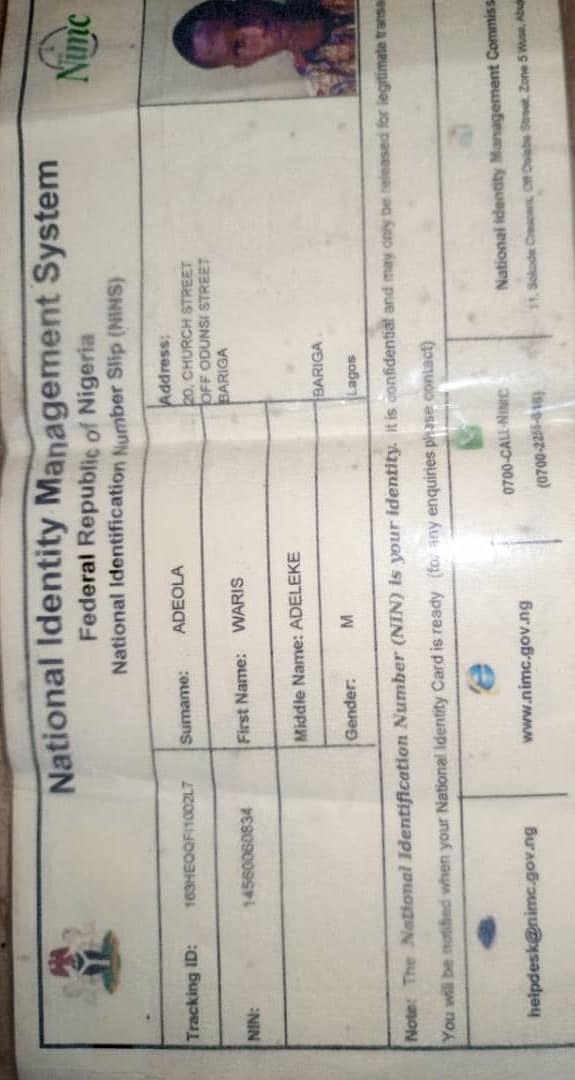 National Identity Management System
Federal Republic of Nigeria
National Identification Number Slip (NINS)
Nimc
Tracking ID:
Surname: ADEOLA
Address:
20, CHURCH STREET
OFF ODUNSI STREET
BARIGA
NIN: 14560060834
First Name: WARIS
Middle Name: ADELEKE
BARIGA
Gender: M
Lagos
Note: The National Identification Number (NIN) is your identity. It is confidential and may only be released for legitimate
You will be notified when your National Identity Card is ready (for any enquiries please contact)
helpdesk@nimc.gov.ng
www.nimc.gov.ng
0700-CALL-NIMC
National Identity Management
11, Sokode Crescent, Off Dalaba Street, Zone 5 Wuse,